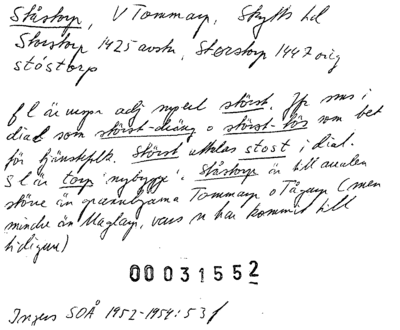 Ståstorp, V Tommarp, Skytts hd
Storstorp 1425 avskr, Storstorp 1447 orig
stóstorp
f l är uppr adj npsed störst. Jfr sms i
dial som störst-dräng o störst-tös som bet
för tjänstefolk. Störst uttalas stost i dial.
S l är torp 'nybygge'. Ståstorp är till arealen
större än grannbyarna Tommarp o Tågarp (men
mindre än Maglarp, vars n har kommit till
tidigare)
00031552
Ingers SOÅ 1952-1954:53 f